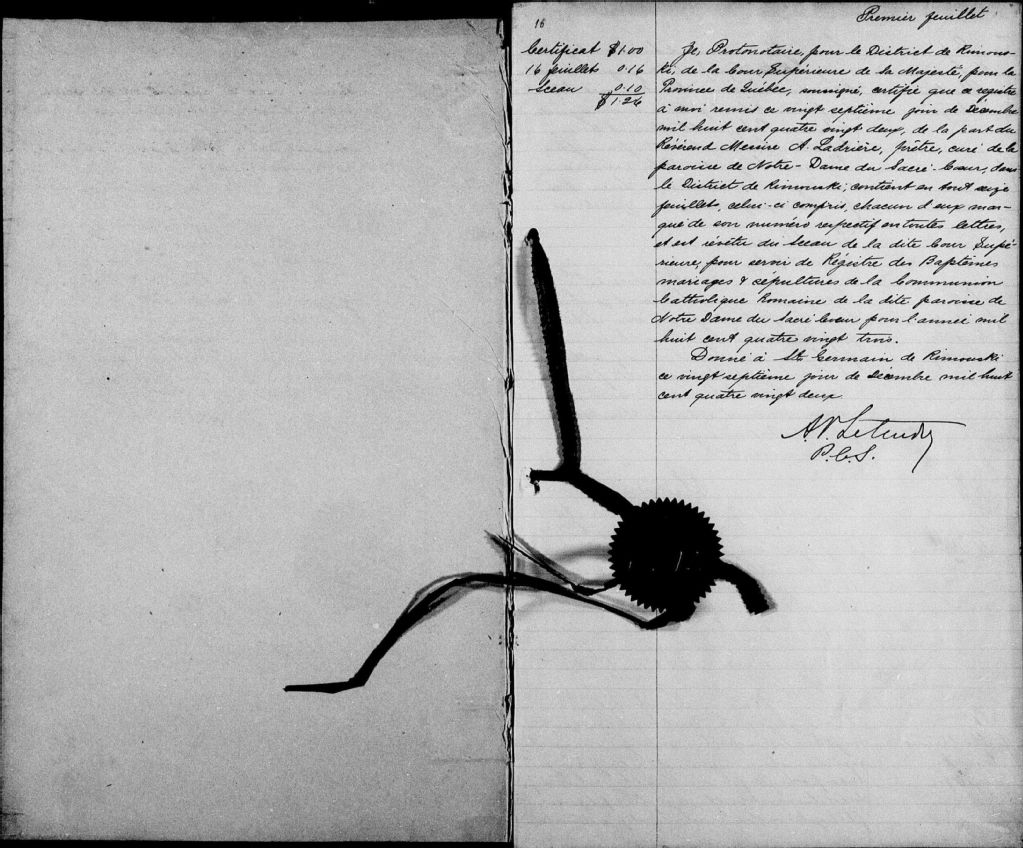 16
Premier feuillet
Certificat $1.00
16 feuillets 0.16
Sceau 0.10
$1.26
Je, Protonotaire, pour le District de Rimous-
ki, de la Cour Supérieure de sa Majesté, pour la
Province de Québec, soussigné, certifie que ce registre
à moi remis ce vingt septième jour de Décembre
mil huit cent quatre vingt deux, de la part du
Révérend Messire A. Ladrière, prêtre, curé de la
paroisse de Notre-Dame du Sacré-Coeur, dans
le District de Rimouski, contient en tout seize
feuillets, celui-ci compris, chacun d'eux mar-
qué de son numéro respectif en toutes lettres,
et est révêtu du Sceau de la dite Cour Supé-
rieure, pour servir de Régistre des Baptêmes
mariages & sépultures de la Communion
Catholique Romaine de la dite paroisse de
Notre Dame du Sacré Coeur pour l'année mil
huit cent quatre vingt trois.
Donné à St. Germain de Rimouski
ce vingt septième jour de Décembre mil huit
cent quatre vingt deux.
A.P. Letendre
P.C.S.